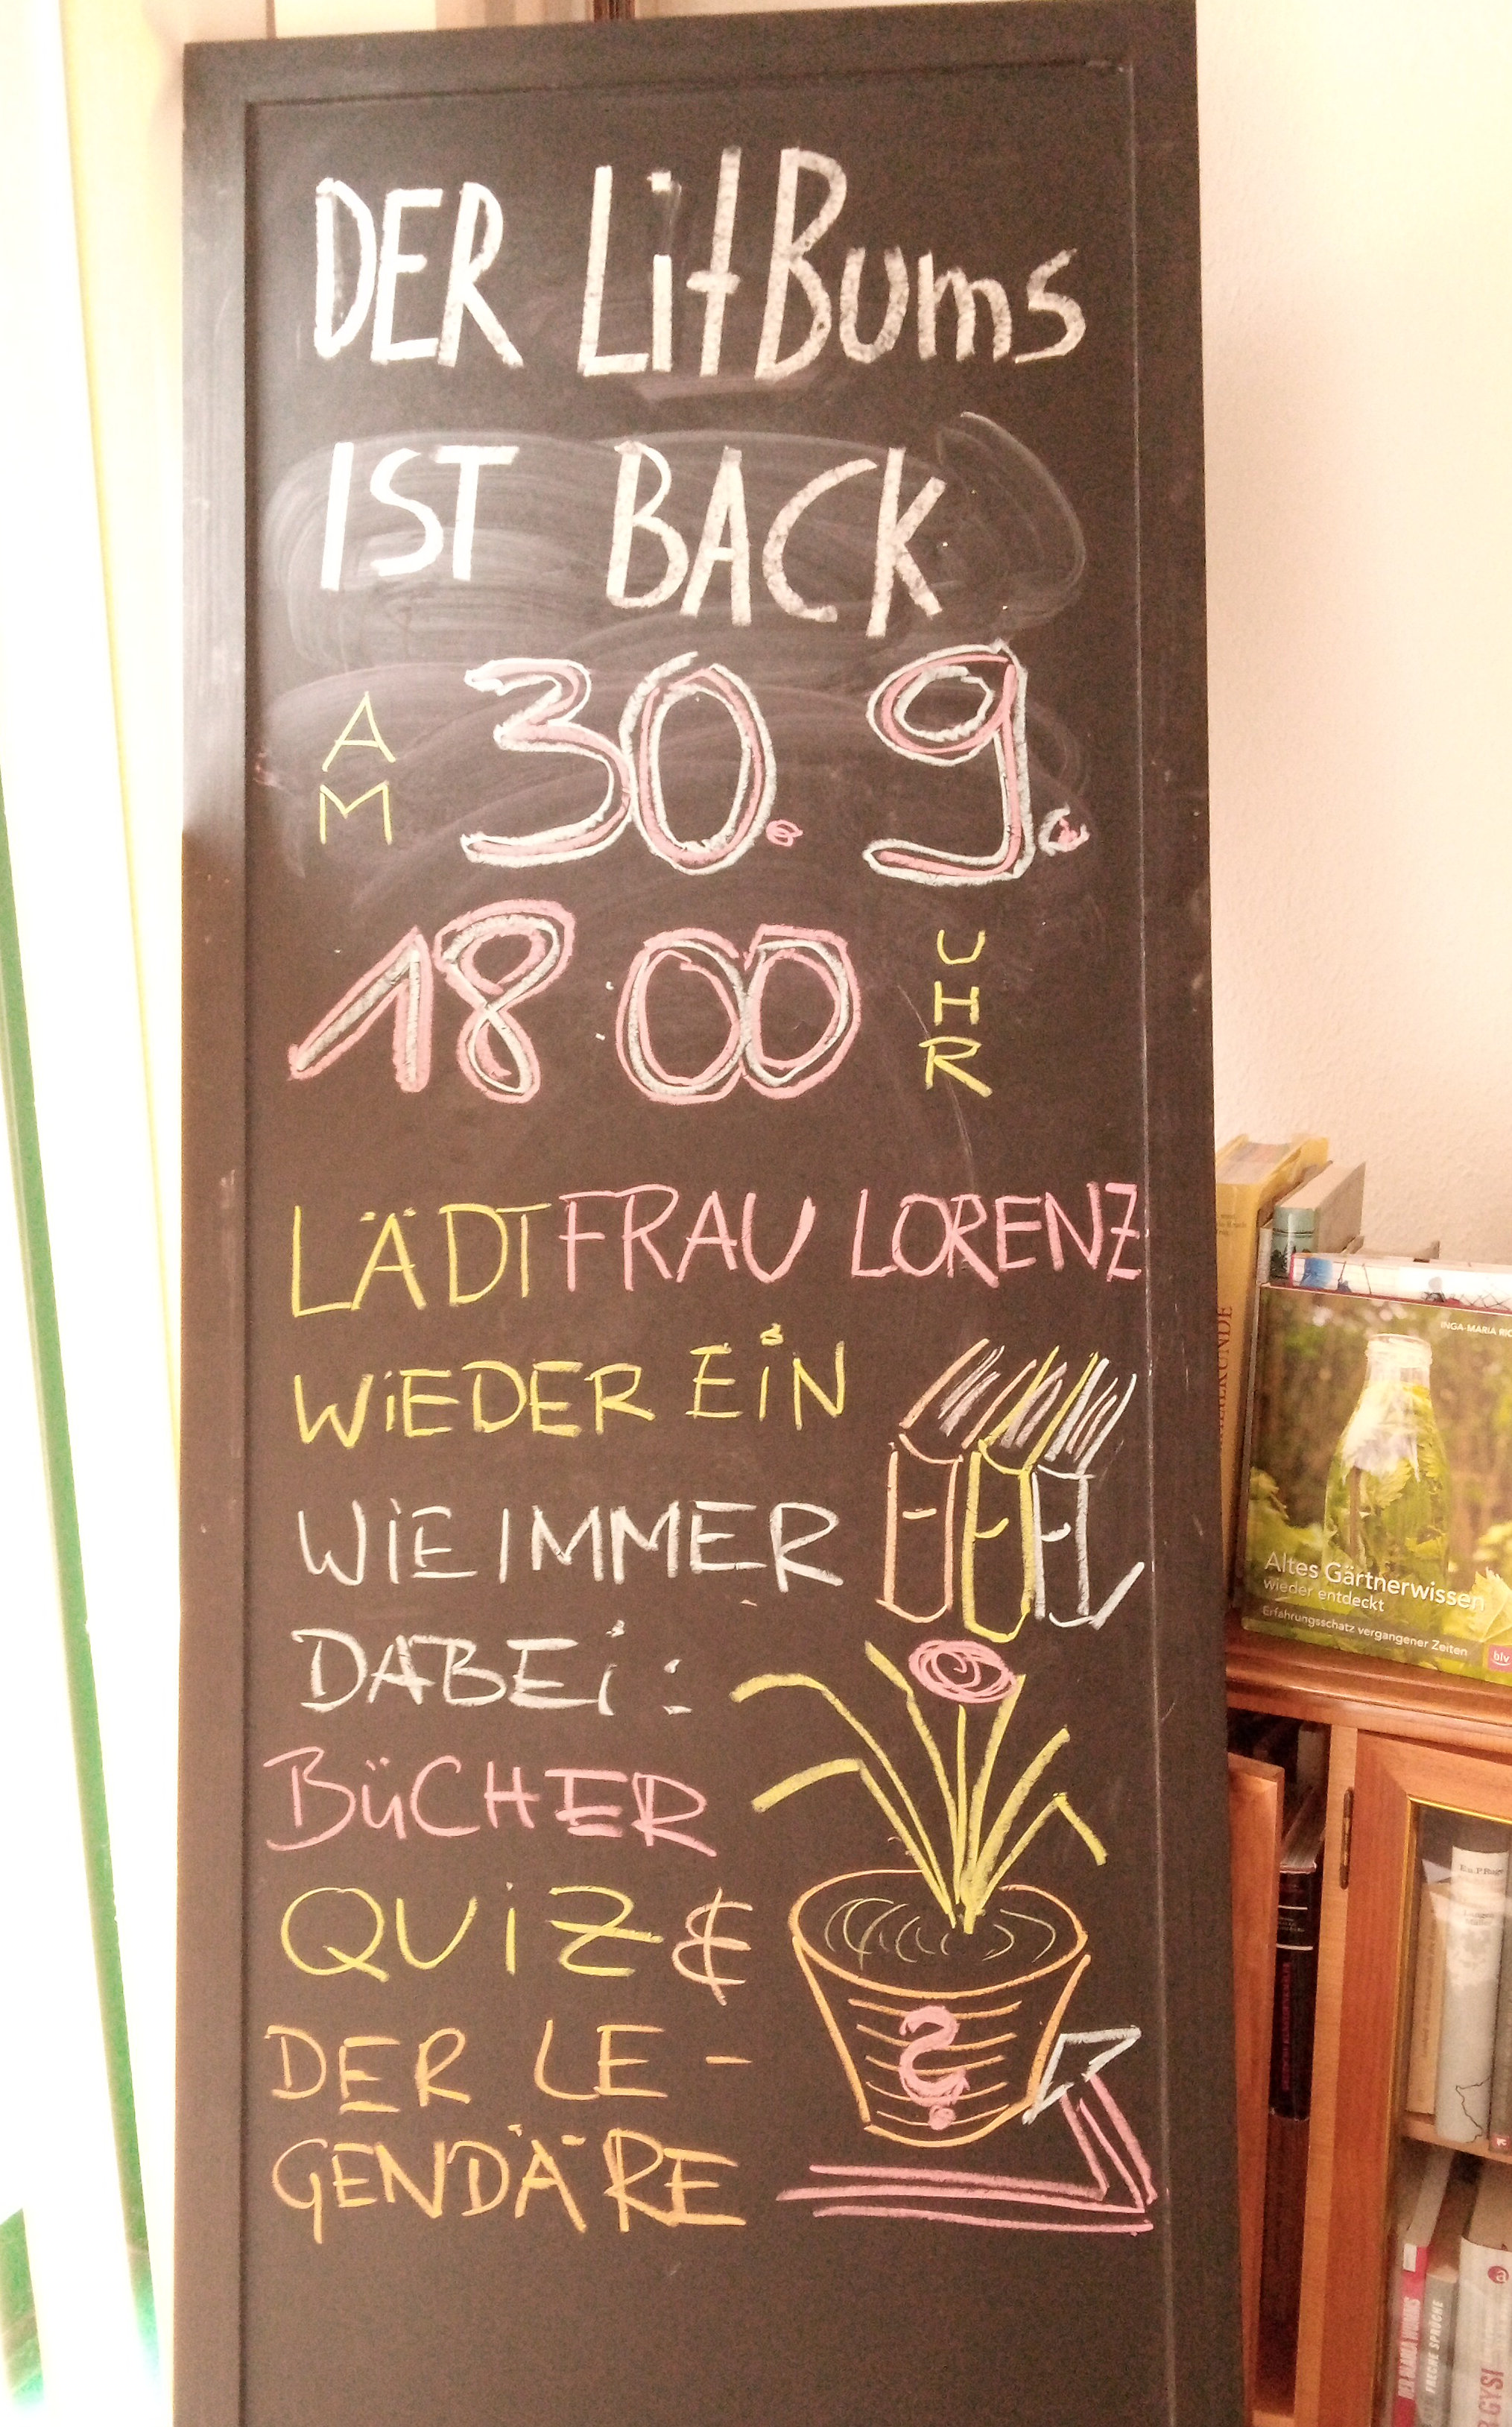 DER LitBums
IST BACK
AM 30. 9.
18 00 UHR
LÄDT FRAU LORENZ
WiEDER EiN
WiE IMMER
DABEi:
BüCHER
QUiZ &
DER LE-
GENDÄRE
?
INGA-MARIA
Altes Gärtnerwissen
wieder entdeckt
Erfahrungsschatz vergangener Zeiten
blv
FRECHE SPRÜCHE
GYSI